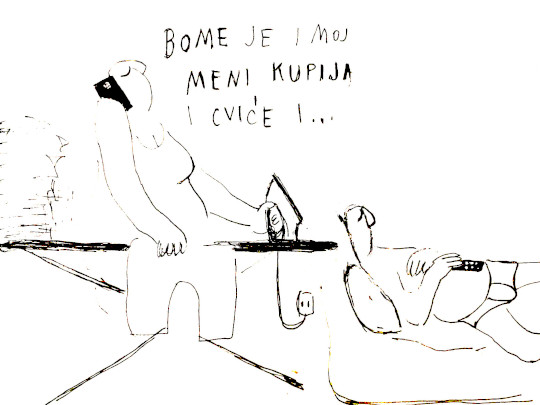 BOME JE I MOJ
MENI KUPIJA
I CVIĆE I...